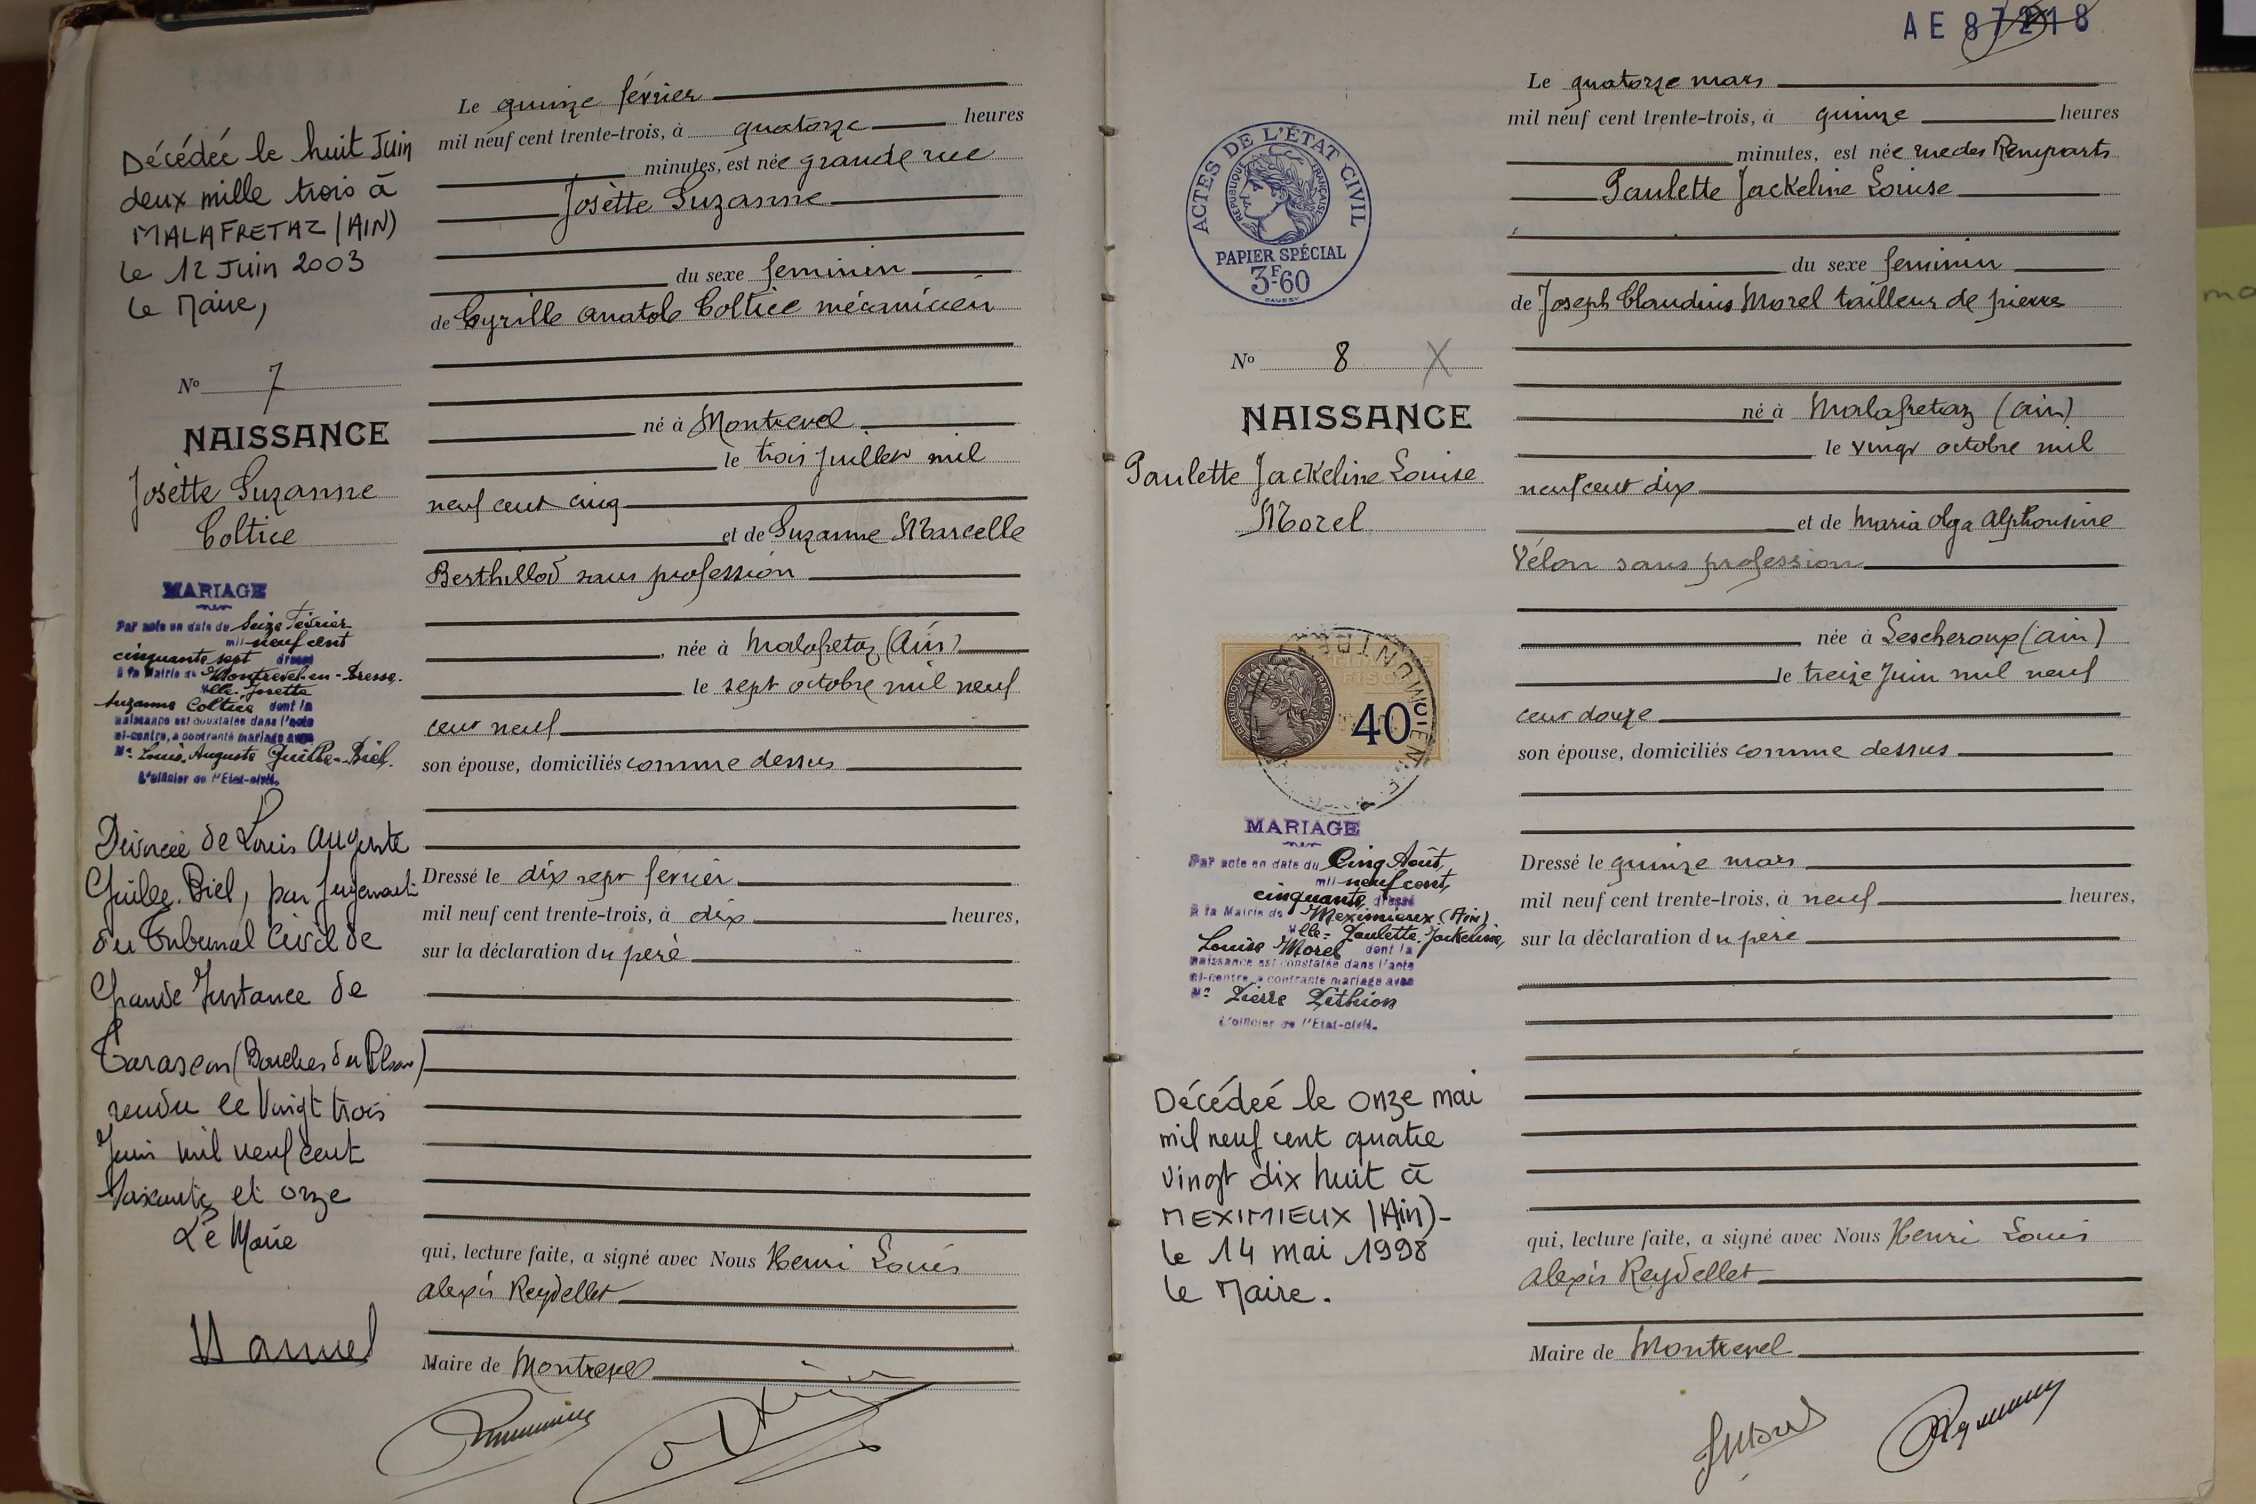 Décédée le huit Juin
deux mille trois à
MALAFRETAZ (AIN)
le 12 Juin 2003
le Maire,
No 7
NAISSANCE
Josètte Suzanne
Coltice
MARIAGE
Par acte en date du Seize Février
mil neuf cent
cinquante sept dressé
à la Mairie de Montrevel-en-Bresse.
Mlle. Josette
Suzanne Coltice dont la
naissance est constatée dans l'acte
ci-contre, a contracté mariage avec
Mr Louis, Auguste Guille-Biel.
L'officier de l'Etat-civil.
Divorcée de Louis Auguste
Guille. Biel, par jugement
du Tribunal Civil de
Grande Instance de
Tarascon (Bouches du Rhone)
rendu le Vingt trois
Juin mil neuf cent
soixante et onze
Le Maire
Le quinze février
mil neuf cent trente-trois, à quatorze heures
minutes, est née grande rue
Josètte Suzanne
du sexe feminin
de Cyrille Anatole Coltice mécanicien
né à Montrevel
le trois Juillet mil
neuf cent cinq
et de Suzanne Marcelle
Berthillod sans profession
née à Malafretaz (Ain)
le sept octobre mil neuf
cent neuf
son épouse, domiciliés comme dessus
Dressé le dix sept février
mil neuf cent trente-trois, à dix heures,
sur la déclaration du père
qui, lecture faite, a signé avec Nous Henri Louis
Alexis Reydellet
Maire de Montrevel
AE 87218
ACTES DE L'ÉTAT CIVIL
RÉPUBLIQUE FRANÇAISE
PAPIER SPÉCIAL
3F60
No 8 X
NAISSANCE
Paulette Jackeline Louise
Morel
RÉPUBLIQUE FRANÇAISE
FISCAL
40
MARIAGE
Par acte en date du Cinq Août
mil neuf cent
cinquante dressé
à la Mairie de Meximieux (Ain)
Mlle. Paulette. Jackeline,
Louise Morel dont la
naissance est constatée dans l'acte
ci-contre, a contracté mariage avec
Mr Pierre Péthion
L'officier de l'Etat-civil.
Décédée le onze mai
mil neuf cent quatre
vingt dix huit à
MEXIMIEUX (Ain)-
le 14 mai 1998
le Maire.
Le quatorze mars
mil neuf cent trente-trois, à quinze heures
minutes, est née rue des Remparts
Paulette Jackeline Louise
du sexe feminin
de Joseph Claudius Morel tailleur de pierre
né à Malafretaz (Ain)
le vingt octobre mil
neuf cent dix
et de Maria Olga Alphonsine
Vélon sans profession
née à Lescheroux (Ain)
le treize Juin mil neuf
cent douze
son épouse, domiciliés comme dessus
Dressé le quinze mars
mil neuf cent trente-trois, à neuf heures,
sur la déclaration du père
qui, lecture faite, a signé avec Nous Henri Louis
Alexis Reydellet
Maire de Montrevel